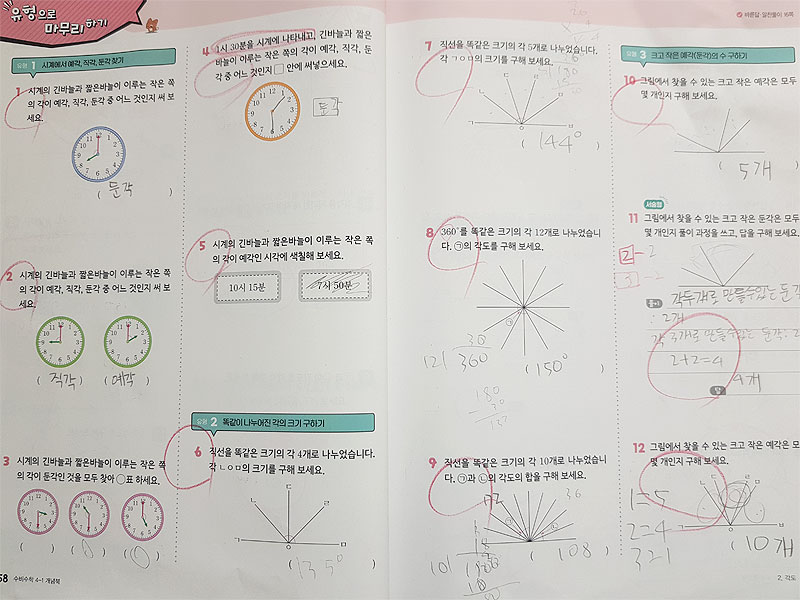 유형으로
마무리하기
유형 1 시계에서 예각, 직각, 둔각 찾기
1 시계의 긴바늘과 짧은바늘이 이루는 작은 쪽
의 각이 예각, 직각, 둔각 중 어느 것인지 써 보
세요.
( 둔각 )
2 시계의 긴바늘과 짧은바늘이 이루는 작은 쪽
의 각이 예각, 직각, 둔각 중 어느 것인지 써 보
세요.
( 직각 ) ( 예각 )
3 시계의 긴바늘과 짧은바늘이 이루는 작은 쪽
의 각이 둔각인 것을 모두 찾아 ○표 하세요.
( ) ( ) ( )
58 수비수학 4-1 개념북
4 1시 30분을 시계에 나타내고, 긴바늘과 짧은
바늘이 이루는 작은 쪽의 각이 예각, 직각, 둔
각 중 어느 것인지 □ 안에 써넣으세요.
둔각
5 시계의 긴바늘과 짧은바늘이 이루는 작은 쪽
의 각이 예각인 시각에 색칠해 보세요.
10시 15분 7시 50분
유형 2 똑같이 나누어진 각의 크기 구하기
6 직선을 똑같은 크기의 각 4개로 나누었습니다.
각 ㄴㅇㅁ의 크기를 구해 보세요.
ㄴ ㄷ ㄹ
ㄱ ㅇ ㅁ
( 135° )
7 직선을 똑같은 크기의 각 5개로 나누었습니다.
각 ㄱㅇㅁ의 크기를 구해 보세요.
( 144° )
8 360°를 똑같은 크기의 각 12개로 나누었습니
다. ㉠의 각도를 구해 보세요.
㉠
30
12) 360
( 150° )
9 직선을 똑같은 크기의 각 10개로 나누었습니
다. ㉠과 ㉡의 각도의 합을 구해 보세요.
36
( 108 )
바른답·알찬풀이 16쪽
유형 3 크고 작은 예각(둔각)의 수 구하기
10 그림에서 찾을 수 있는 크고 작은 예각은 모두
몇 개인지 구해 보세요.
( 5개 )
서술형
11 그림에서 찾을 수 있는 크고 작은 둔각은 모두
몇 개인지 풀이 과정을 쓰고, 답을 구해 보세요.
2 - 2
3 - 2
풀이 각두개로 만들수있는 둔각
: 2개
각 3개로 만들수있는 둔각: 2
2+2=4
답 4개
12 그림에서 찾을 수 있는 크고 작은 예각은 모
몇 개인지 구해 보세요.
1=5
2=4
3=1
( 10개
2. 각도